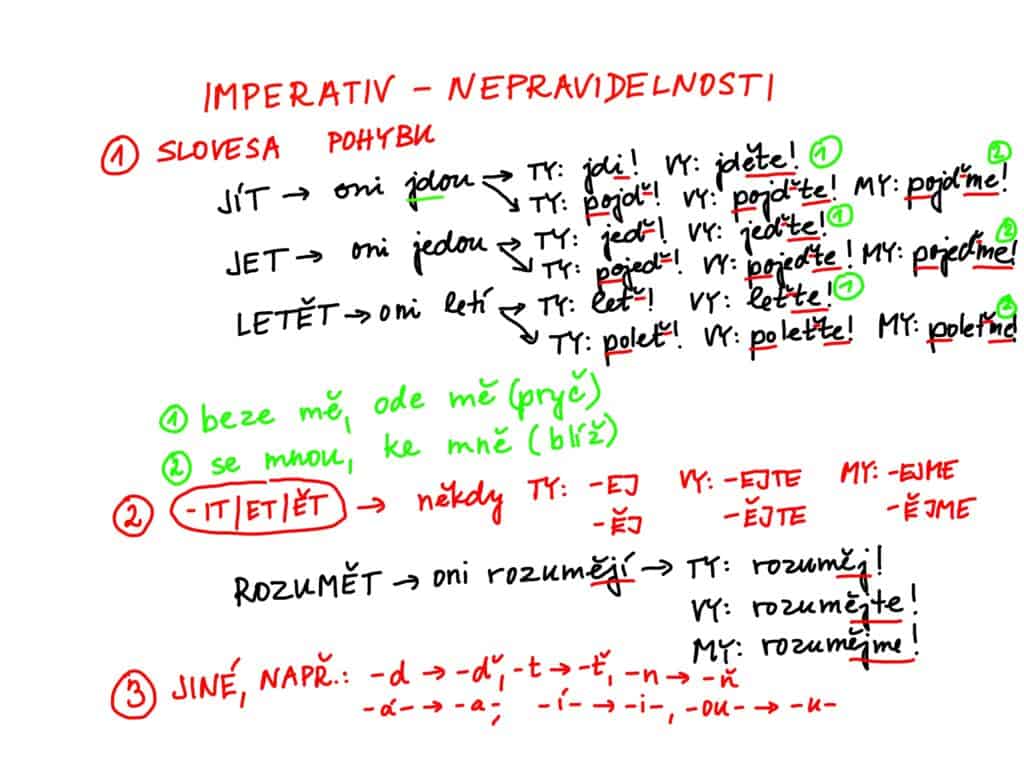 IMPERATIV - NEPRAVIDELNOSTI
① SLOVESA POHYBU
JÍT → oni jdou → TY: jdi! VY: jděte! ①
TY: pojď! VY: pojďte! MY: pojďme! ②
JET → oni jedou → TY: jeď! VY: jeďte! ①
TY: pojeď! VY: pojeďte! MY: pojeďme! ②
LETĚT → oni letí → TY: leť! VY: leťte! ①
TY: poleť! VY: poleťte! MY: poleťme! ②
① beze mě, ode mě (pryč)
② se mnou, ke mně (blíž)
② -IT/ET/ĚT → někdy TY: -EJ VY: -EJTE MY: -EJME
-ĚJ -ĚJTE -ĚJME
ROZUMĚT → oni rozumějí → TY: rozuměj!
VY: rozumějte!
MY: rozumějme!
③ JINÉ, NAPŘ.: -d → -ď, -t → -ť, -n → -ň
-á- → -a-, -í- → -i-, -ou- → -u-